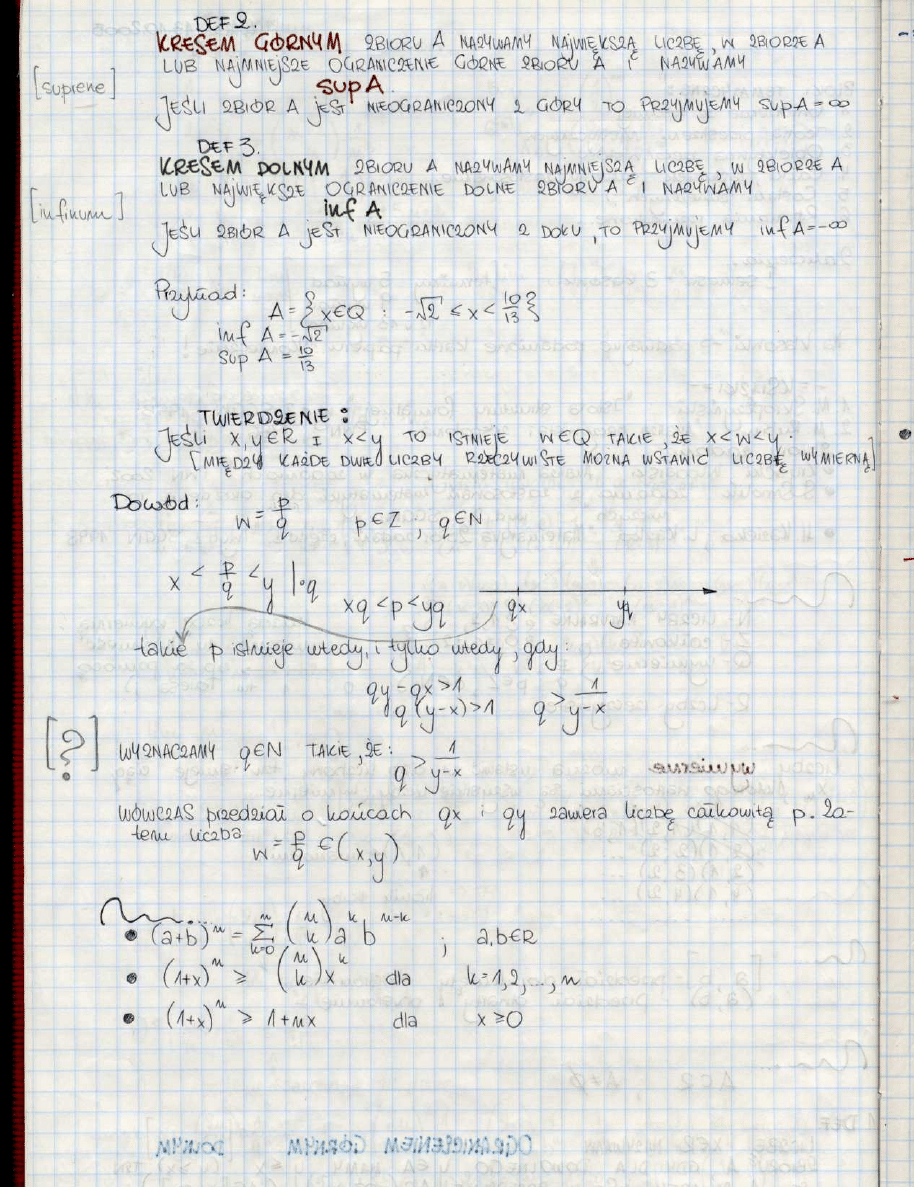 DEF 2.
KRESEM GÓRNYM ZBIORU A NAZYWAMY NAJWIĘKSZĄ LICZBĘ, W ZBIORZE A
LUB NAJMNIEJSZE OGRANICZENIE GÓRNE ZBIORU A I NAZYWAMY
[supiene]
sup A
JEŚLI ZBIÓR A JEST NIEOGRANICZONY Z GÓRY TO PRZYJMUJEMY sup A = ∞
DEF 3.
KRESEM DOLNYM ZBIORU A NAZYWAMY NAJMNIEJSZĄ LICZBĘ, W ZBIORZE A
LUB NAJWIĘKSZE OGRANICZENIE DOLNE ZBIORU A I NAZYWAMY
[infinum]
inf A
JEŚLI ZBIÓR A JEST NIEOGRANICZONY Z DOŁU, TO PRZYJMUJEMY inf A = -∞
Przykład:
A = { x ∈ Q : -√2 ≤ x < 10/13 }
inf A = -√2
sup A = 10/13
TWIERDZENIE:
JEŚLI X, y ∈ R I X < y TO ISTNIEJE W ∈ Q TAKIE, ŻE X < W < y.
[MIĘDZY KAŻDE DWIE LICZBY RZECZYWISTE MOŻNA WSTAWIĆ LICZBĘ WYMIERNĄ]
Dowód:
W = p/q p ∈ Z, q ∈ N
x < p/q < y |·q
xq < p < yq qx yq
takie p istnieje wtedy, i tylko wtedy, gdy:
qy - qx > 1
q(y-x) > 1 q > 1/(y-x)
[?] WYZNACZAMY q ∈ N TAKIE, ŻE:
q > 1/(y-x)
WÓWCZAS przedział o końcach qx i qy zawiera liczbę całkowitą p. Za-
tem liczba
W = p/q ∈ (x, y)
• (a+b)^n = Σ_{k=0}^{n} (n k) a^k b^{n-k} ; a, b ∈ R
• (1+x)^n ≥ (n k) x^k dla k = 1, 2, ..., n
• (1+x)^n ≥ 1 + nx dla x ≥ 0